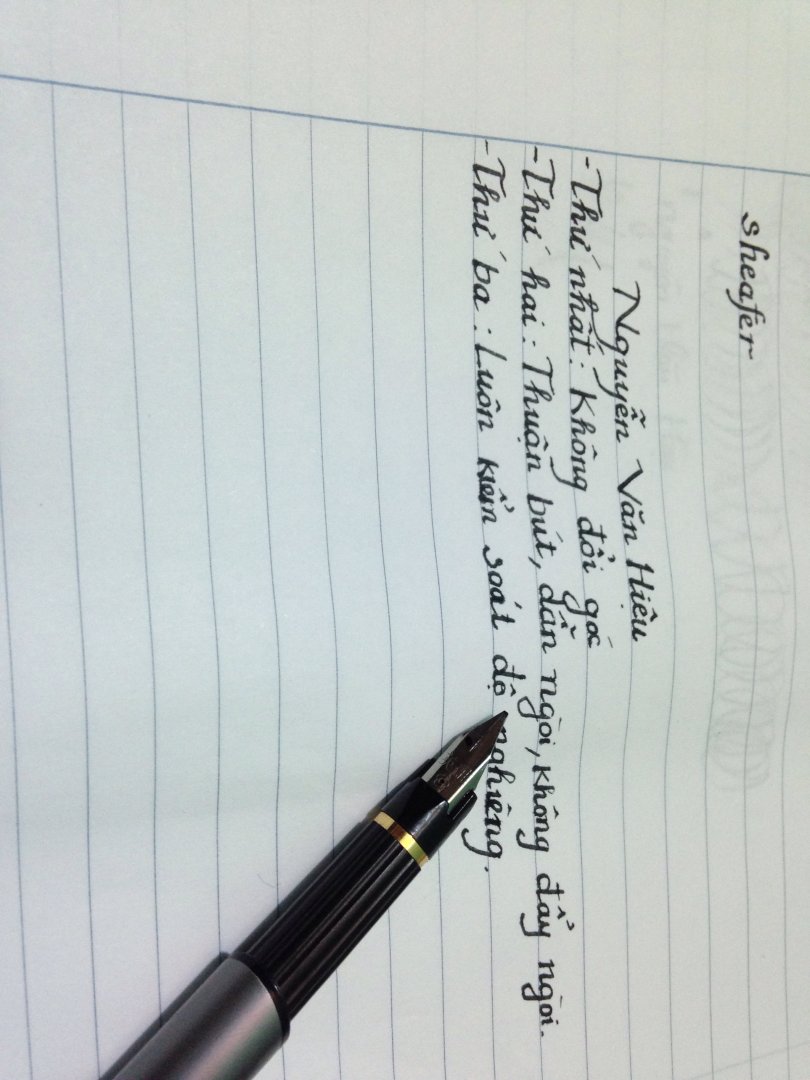 sheafer
Nguyễn Văn Hiệu
- Thứ nhất: Không đổi góc
- Thứ hai: Thuận bút, dẫn ngòi, không đẩy ngòi.
- Thứ ba: Luôn kiểm soát độ nghiêng.